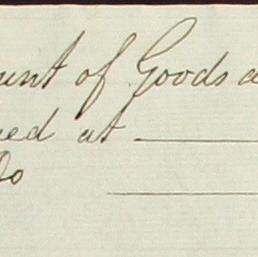 unt of Goods a
ed at
Do